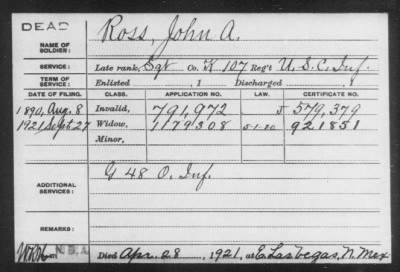 DEAD
NAME OF SOLDIER: Ross, John A.
SERVICE: Late rank, Sgt Co. K 107 Reg't U.S.C. Inf.
TERM OF SERVICE: Enlisted , 1 Discharged , 1
DATE OF FILING. CLASS. APPLICATION NO. LAW. CERTIFICATE NO.
1890, Aug. 8 Invalid, 791,972 J 579,379
1921, Sept. 27 Widow, 1179308 5-1-20 921851
Minor,
ADDITIONAL SERVICES: G 48 O. Inf.
REMARKS:
Died Apr. 28, 1921, at E. Las Vegas, N. Mex